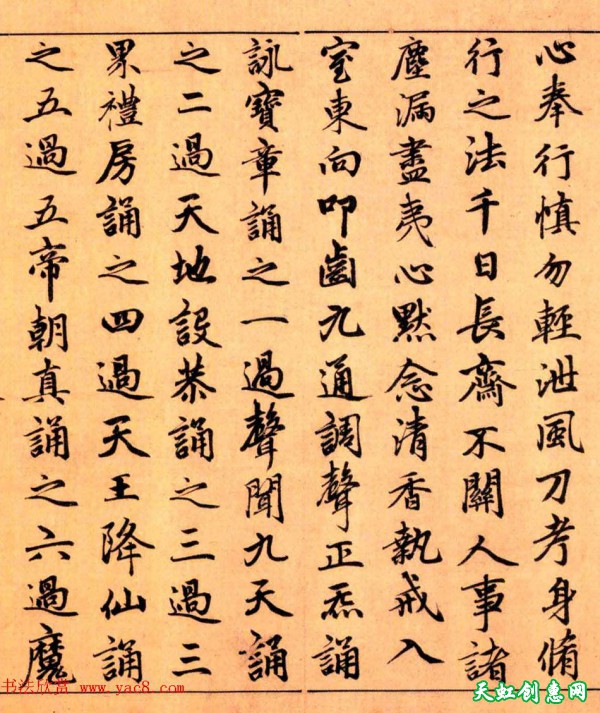 心奉行慎勿輕泄風刀考身脩
行之法千日長齋不關人事諸
塵漏盡夷心默念清香執戒入
室東向叩齒九通調聲正炁誦
詠寶章誦之一過聲聞九天誦
之二過天地設恭誦之三過三
界禮房誦之四過天王降仙誦
之五過五帝朝真誦之六過魔
书法欣赏 www.yac8.com
天虹创意网